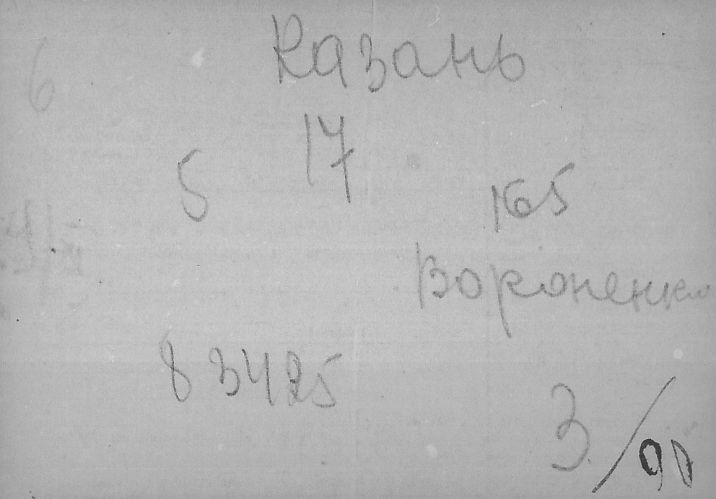 Казань
17
5
165
Вороненко
83425
3/90